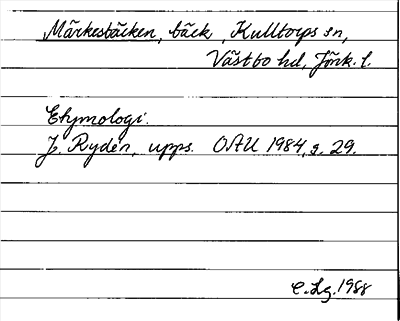 Märkesbäcken, bäck Kulltorps sn,
Västbo hd, Jönk. l.
Etymologi.
J. Rydén, upps. OAU 1984, s. 29.
C.Lg. 1988